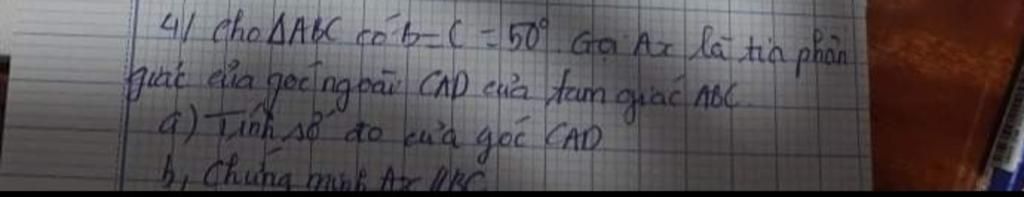 4/ Cho ΔABC có b = C = 50° Gọi Ax là tia phân
giác của góc ngoài CAD của tam giác ABC
a) Tính số đo của góc CAD
b, Chứng minh Ax // BC